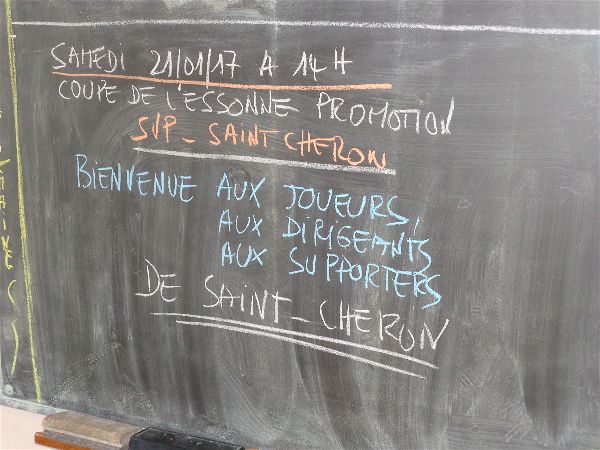 SAMEDI 21/01/17 A 14H
COUPE DE L'ESSONNE PROMOTION
SVP_SAINT CHERON
BIENVENUE AUX JOUEURS,
AUX DIRIGEANTS
AUX SUPPORTERS
DE SAINT_CHERON